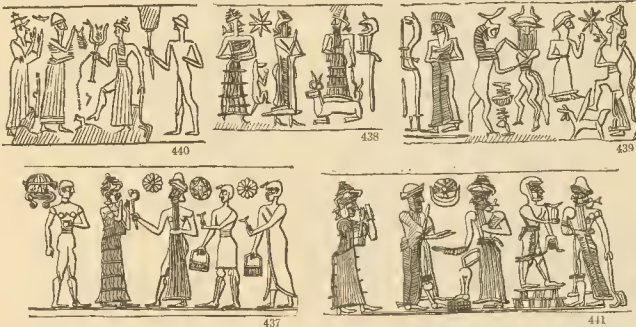 440
438
439
437
441